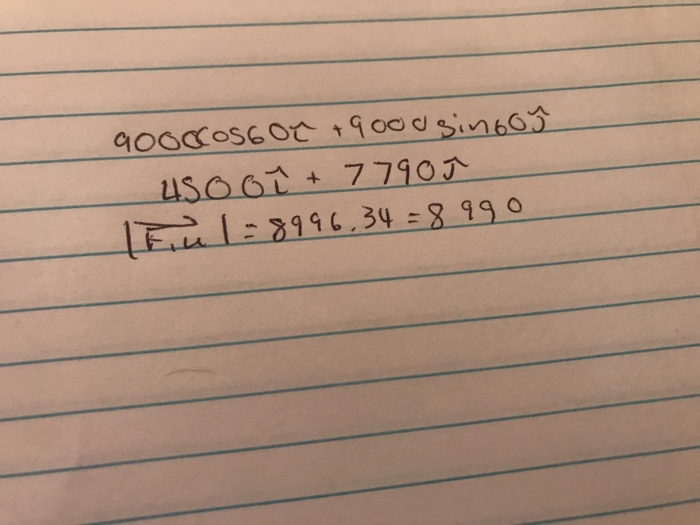 9000cos60î + 9000sin60ĵ
4500î + 7790ĵ
|F₁,u| = 8996.34 = 8990